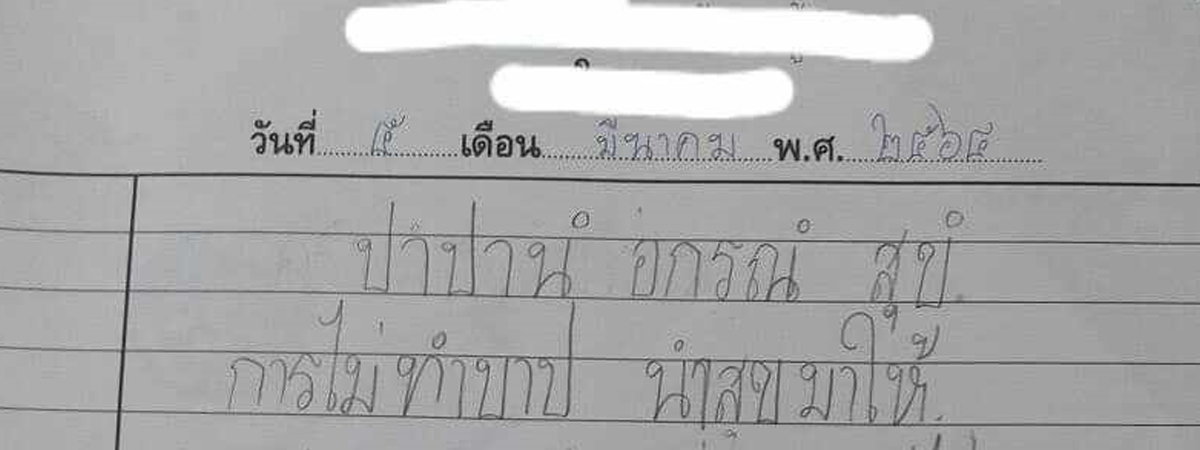 วันที่ ๕ เดือน มีนาคม พ.ศ. ๒๕๖๕
ปาปานํ อกรณํ สุขํ.
การไม่ทำบาป นำสุขมาให้.